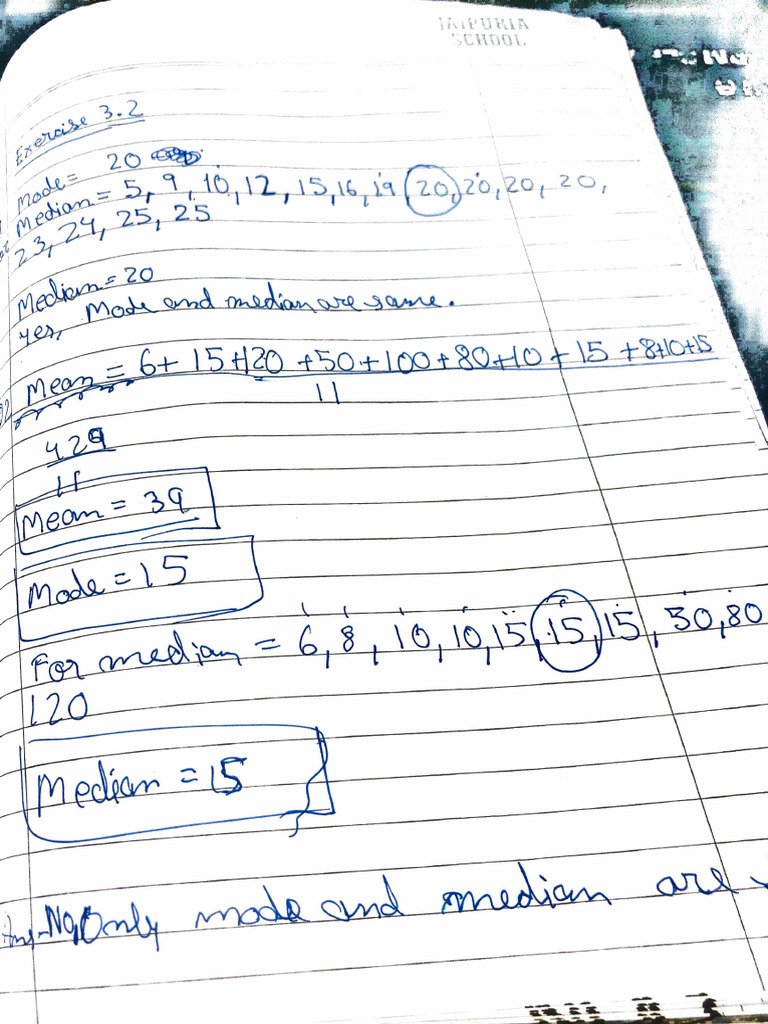 JAIPURIA
SCHOOL
Exercise 3.2
Mode = 20
Median = 5, 9, 10, 12, 15, 16, 19, 20, 20, 20, 20,
23, 24, 25, 25
Median = 20
Yes, Mode and median are same.
Mean = 6+ 15+120 +50+100+80+10+15 +8+10+15
11
429
11
Mean = 39
Mode = 15
For median = 6, 8, 10, 10, 15, 15, 15, 50, 80
120
Median = 15
Ans- No, Only mode and median are